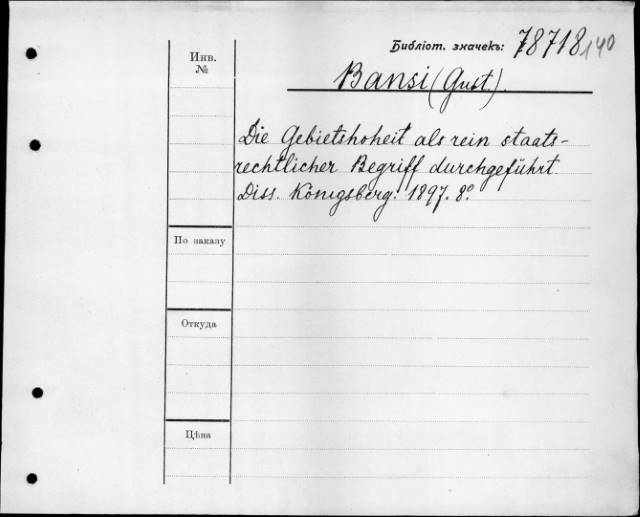 Библіот. значекъ: 78718/140
Инв.
№
Bansi (Gust.).
Die Gebietshoheit als rein staats-
rechtlicher Begriff durchgeführt.
Diss. Königsberg. 1897. 8º
По заказу
Откуда
Цѣна